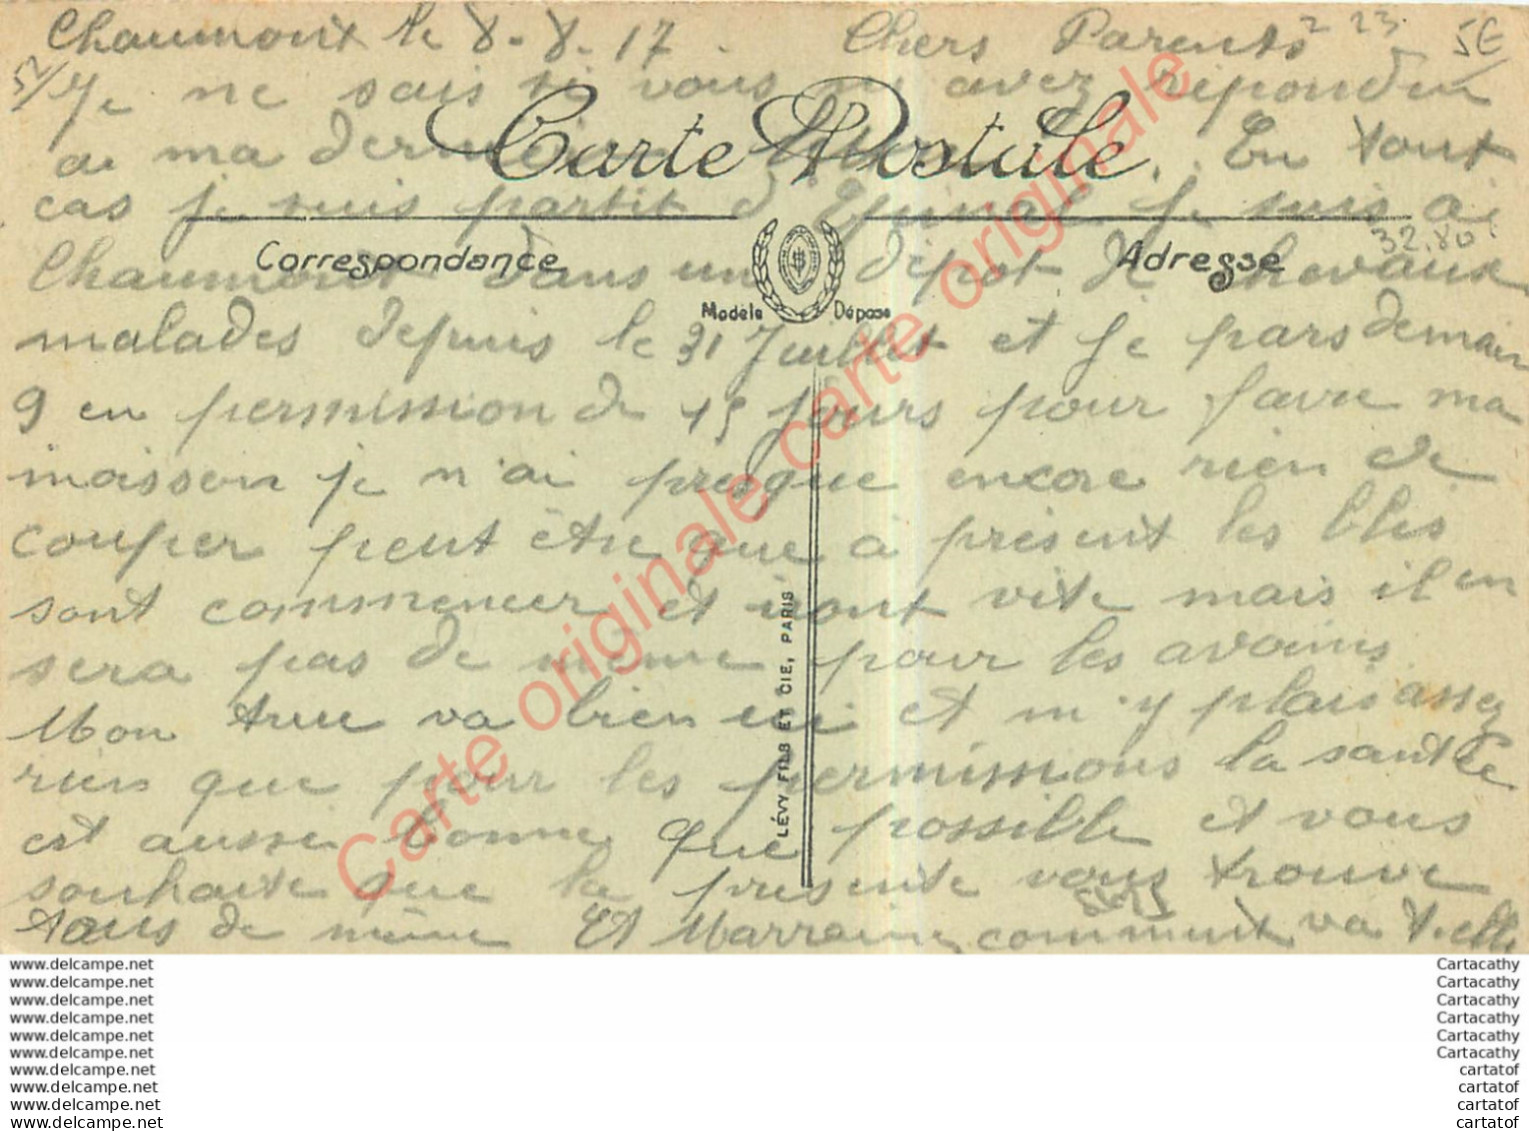 Chaumont le 8-8-17. Chers Parents 2 23 5E
52/ Je ne sais si vous m'avez répondu
Carte Postale
a ma dernière lettre. En tout
cas je suis partit d'Epinal je suis a
32.80
Correspondance Adresse
Chaumont dans un dépot de chevaux
Modèle Déposé
malades depuis le 31 Juillet et je pars demain
9 en permission de 15 jours pour faire ma
moisson je n'ai presque encore rien de
couper peut être que à présent les blés
sont commencer et vont vite mais il en
sera pas de même pour les avoines
Mon truc va bien ici et m'y plais assez
rien que pour les permissions la santée
est aussi bonne que possible et vous
souhaite que la présente vous trouve
tous de même Et Marraine comment va t-elle
LÉVY FILS ET CIE, PARIS
Carte originale carte originale Carte originale
www.delcampe.net Cartacathy
www.delcampe.net Cartacathy
www.delcampe.net Cartacathy
www.delcampe.net Cartacathy
www.delcampe.net Cartacathy
www.delcampe.net Cartacathy
www.delcampe.net cartatof
www.delcampe.net cartatof
www.delcampe.net cartatof
www.delcampe.net cartatof